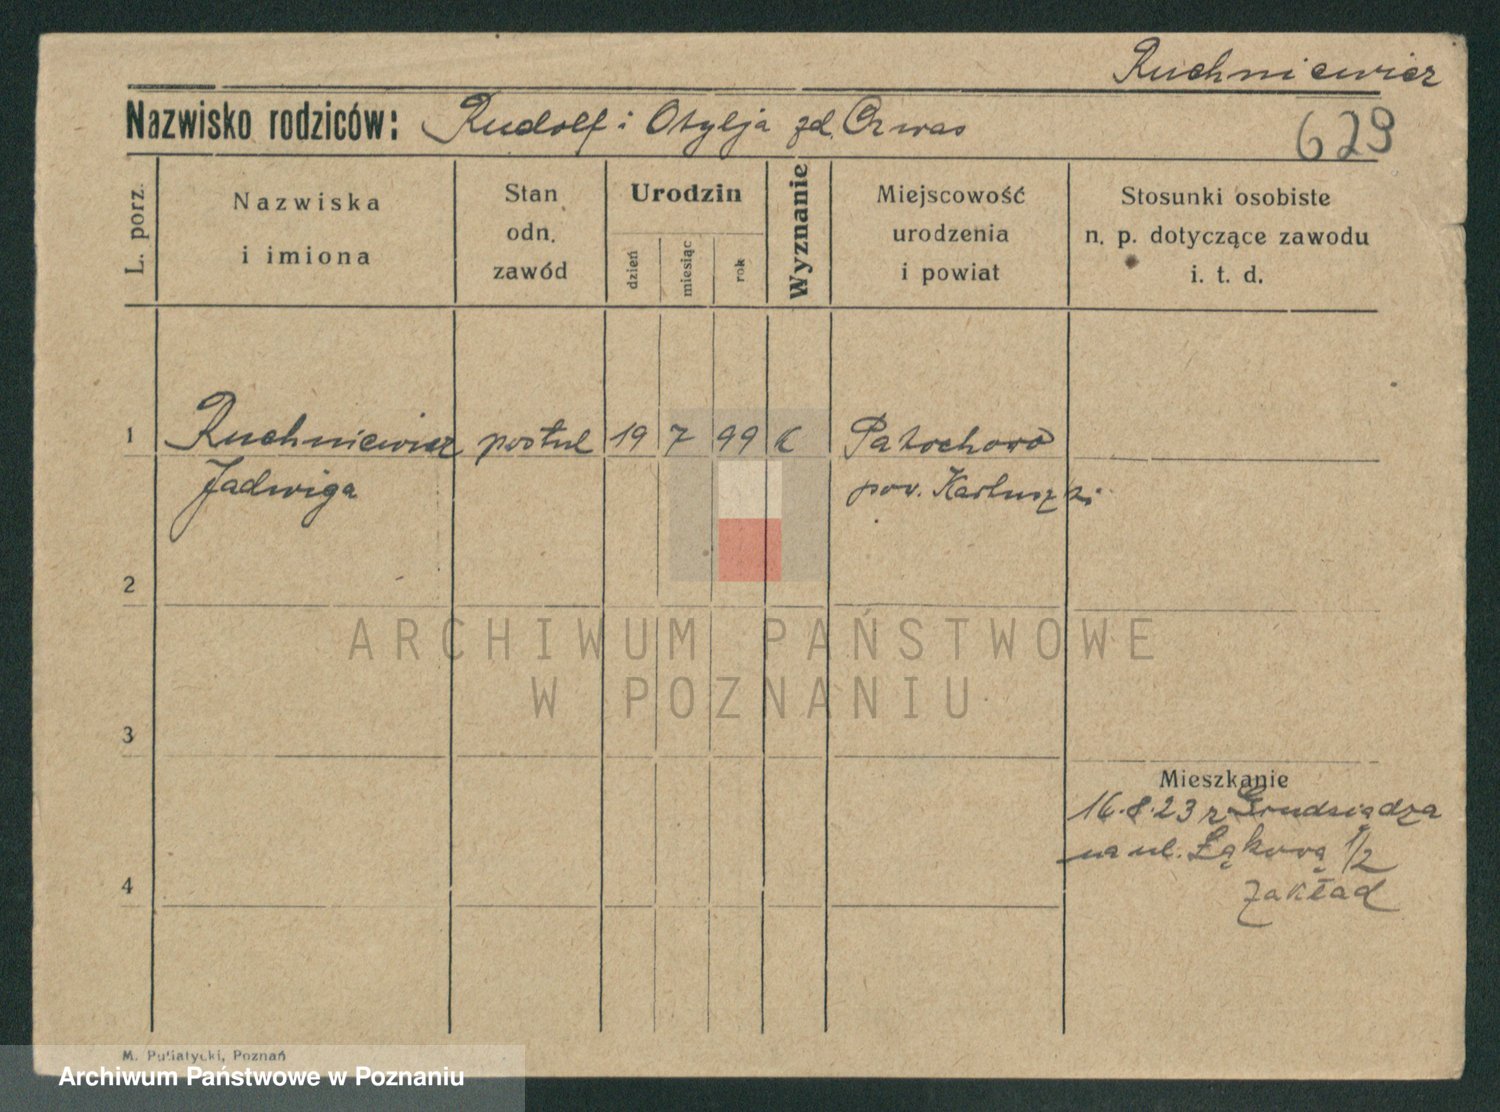 Ruchniewicz
Nazwisko rodziców: Rudolf i Otylja zd. Czwas
629
L. porz.
Nazwiska
i imiona
Stan
odn.
zawód
Urodzin
dzień
miesiąc
rok
Wyznanie
Miejscowość
urodzenia
i powiat
Stosunki osobiste
n. p. dotyczące zawodu
i. t. d.
1 Ruchniewicz postul 19 7 99 K Patochowo
Jadwiga pow. Kartuszki
2
ARCHIWUM PAŃSTWOWE
W POZNANIU
3
Mieszkanie
16.8.23 z Grudziądza
na ul. Łąkową 1/2
zakład
4
M. Putiatycki, Poznań
Archiwum Państwowe w Poznaniu